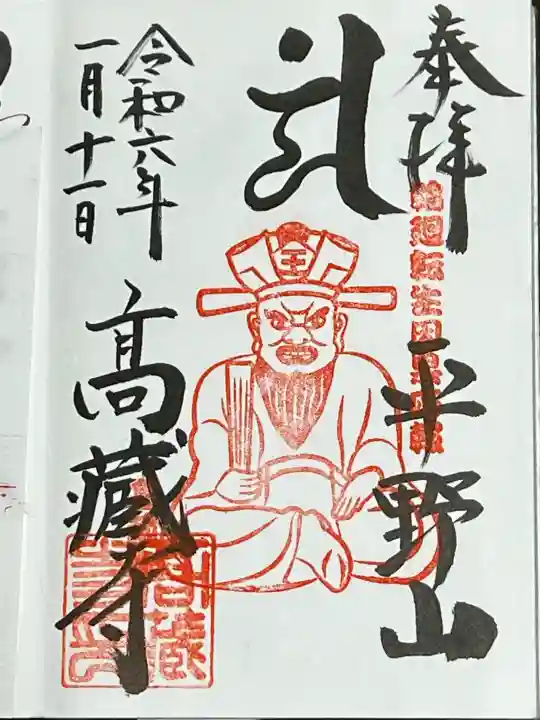 奉拝
平野山
王
令和六年
一月十一日
高蔵寺